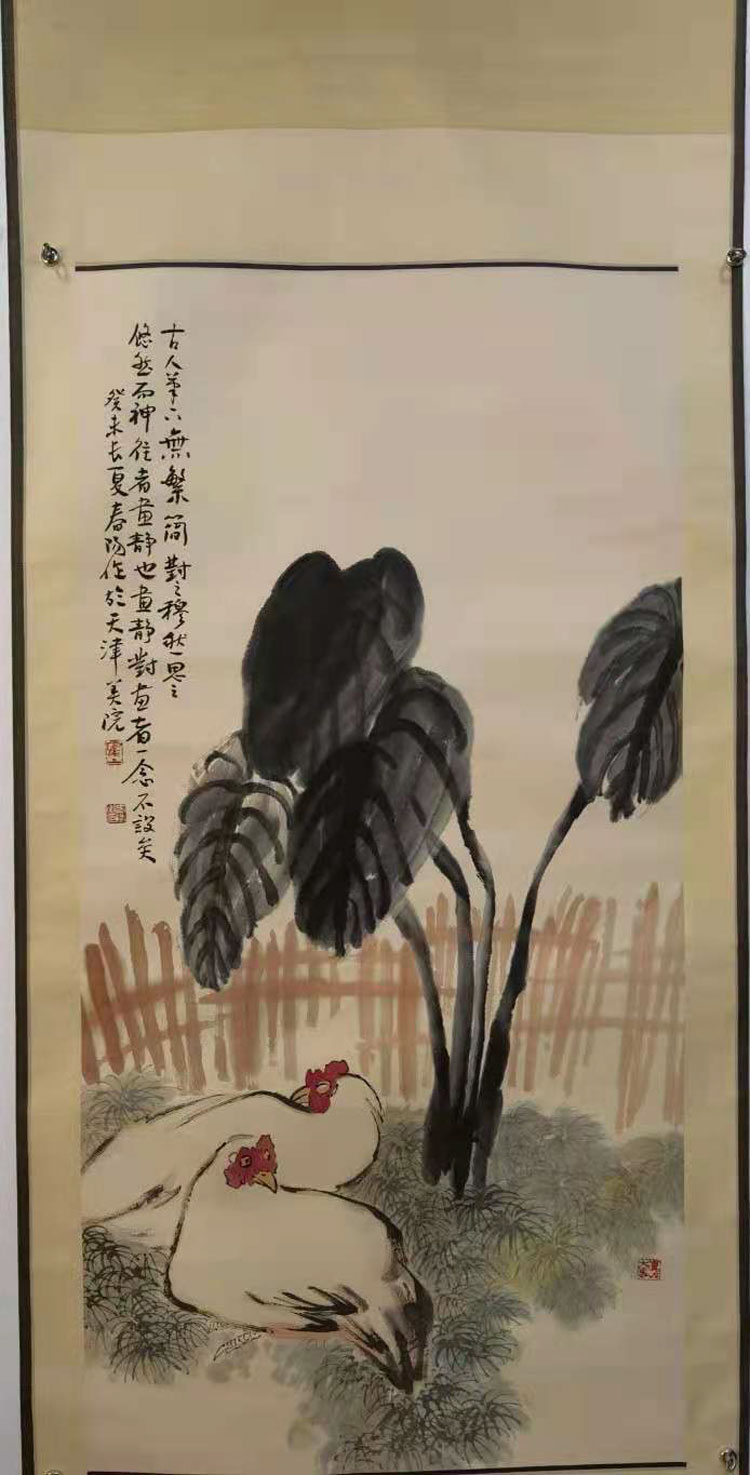 古人笔下無繁簡對之穆然思之
悠然而神往者畫靜也畫靜對畫者一念不設矣
癸未长夏春陽作於天津美院